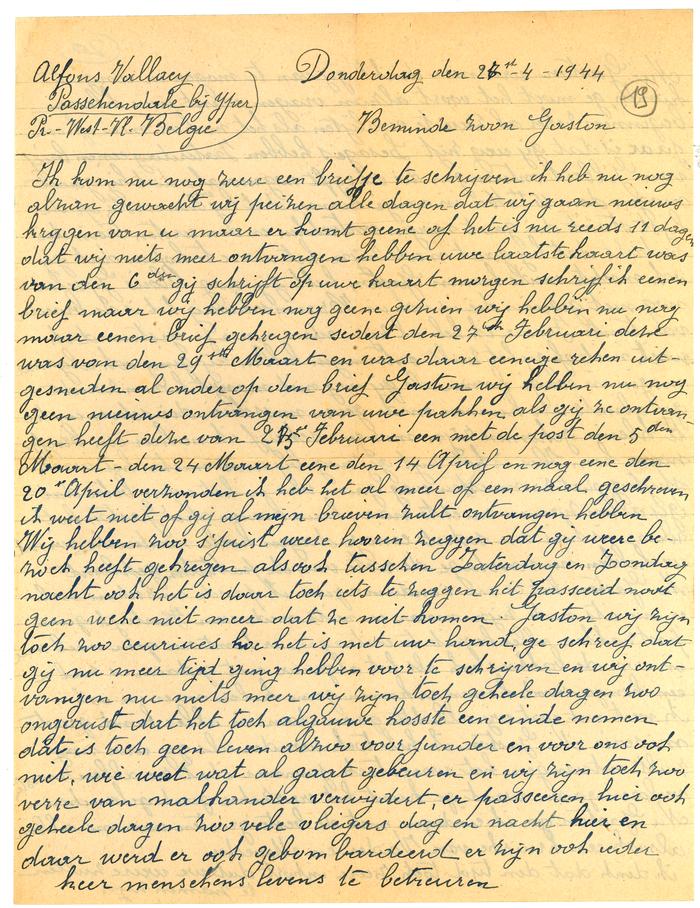 Alfons Vallaey
Passchendale bij Yper
Pr.-West-Vl. Belgie
Donderdag den 27st-4-1944
19
Beminde zoon Gaston
Ik kom nu nog zeere een briefje te schrijven ik heb nu nog
alvan gewacht wij peizen alle dagen dat wij gaan nieuws
krygen van u maar er komt geene of het is nu reeds 11 dagen
dat wij niets meer ontvangen hebben uwe laatste kaart was
van den 6den gij schrijft op uwe kaart morgen schrijf ik eenen
brief maar wij hebben nog geene gezien wij hebben nu nog
maar eenen brief gekregen sedert den 27st Februari deze
was van den 29ste Maart en was daar eenege reken uit-
gesneden al onder op den brief Gaston wij hebben nu nog
geen nieuws ontvangen van uwe pakken als gij ze ontvan-
gen heeft deze van 25st Februari een met de post den 5den
Maart - den 24 Maart eene den 14 April en nog eene den
20st April verzonden ik heb het al meer of een maal geschreven
ik weet niet of gij al mijn brieven zult ontvangen hebben
Wij hebben zoo s'juist weere hooren zeggen dat gij weere be-
zoek heeft gekregen alsook tusschen Zaterdag en Zondag
nacht ook het is daar toch iets te zeggen hit passeerd nooit
geen weke niet meer dat ze niet komen. Gaston wij zijn
toch zoo ceurieus hoe het is met uw hand, ge schreef dat
gij nu meer tijd ging hebben voor te schrijven en wij ont-
vangen nu niets meer wij zijn toch geheele dagen zoo
ongerust dat het toch algauwe kosste een einde nemen
dat is toch geen leven alzoo voor junder en voor ons ook
niet, wie weet wat al gaat gebeuren en wij zijn toch zoo
verre van malkander verwijdert, er passeeren hier ook
geheele dagen zoo vele vliegers dag en nacht hier en
daar werd er ook gebombardeerd er zijn ook ieder
keer menschens levens te betreuren